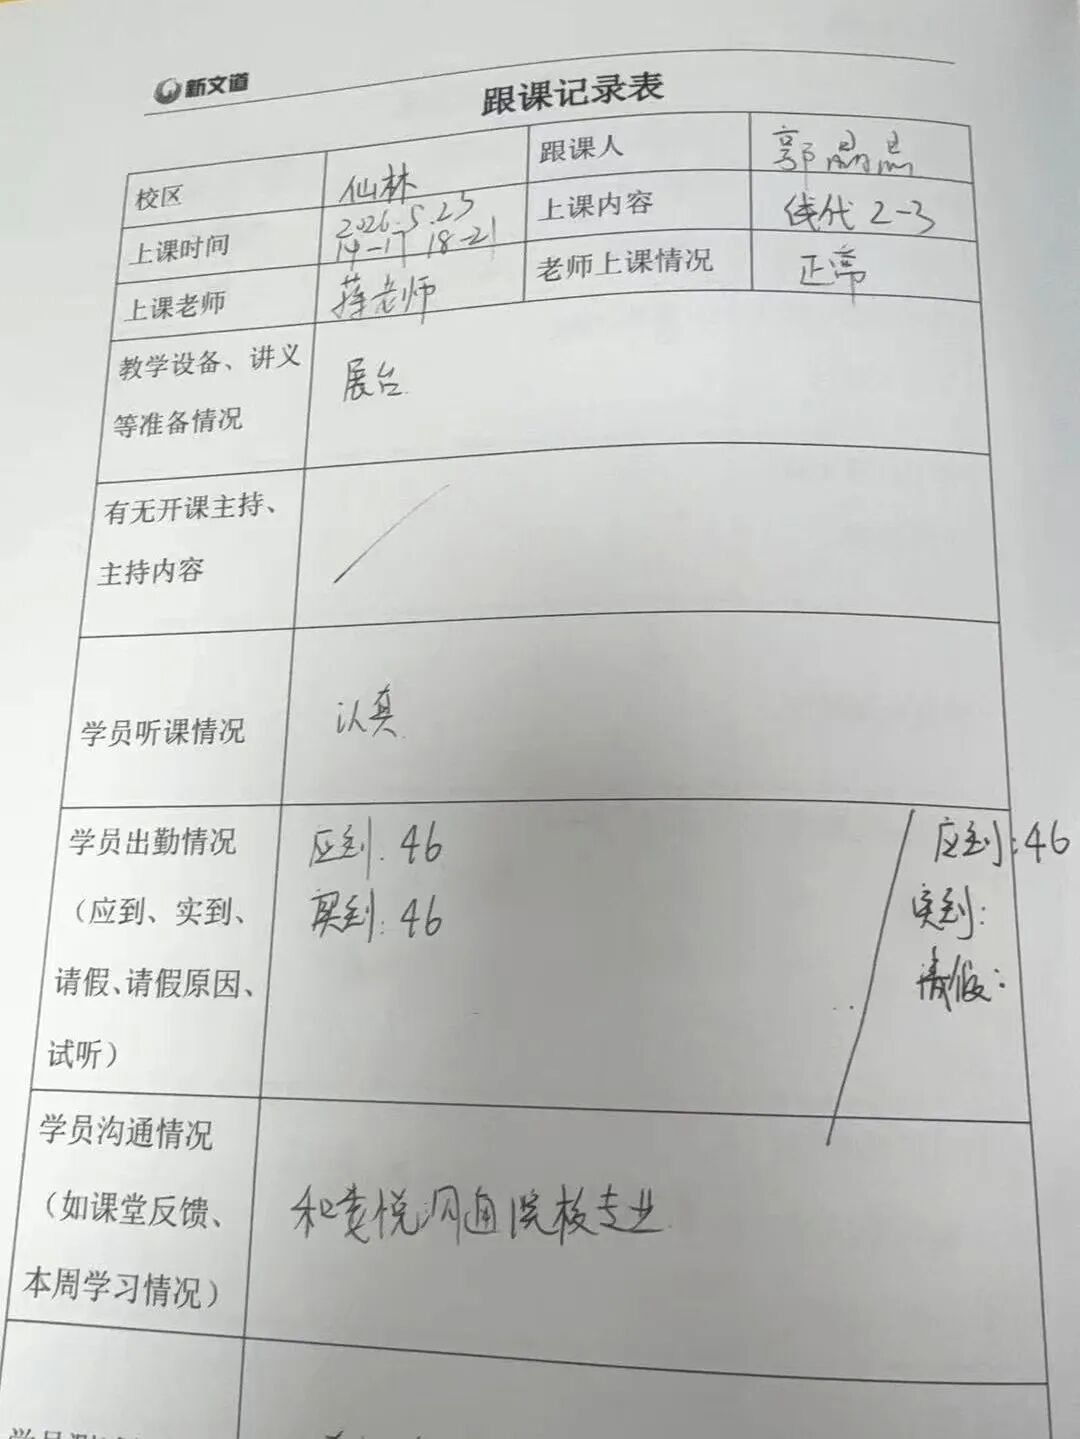 新文道
跟课记录表
校区 仙林 跟课人 郭晶晶
上课时间 2026.5.23 14-17 18-21 上课内容 线代2-3
上课老师 蒋老师 老师上课情况 正常
教学设备、讲义 展台
等准备情况
有无开课主持、
主持内容
学员听课情况 认真
学员出勤情况 应到:46 应到:46
(应到、实到、 实到:46 实到:
请假、请假原因、 请假:
试听)
学员沟通情况
(如课堂反馈、 和 悦沟通院校专业
本周学习情况)